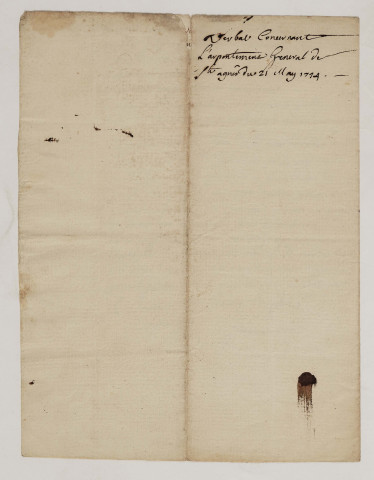 Verbal Concernant
L'arpentement General de
Ste agnès du 21 May 1774 . —